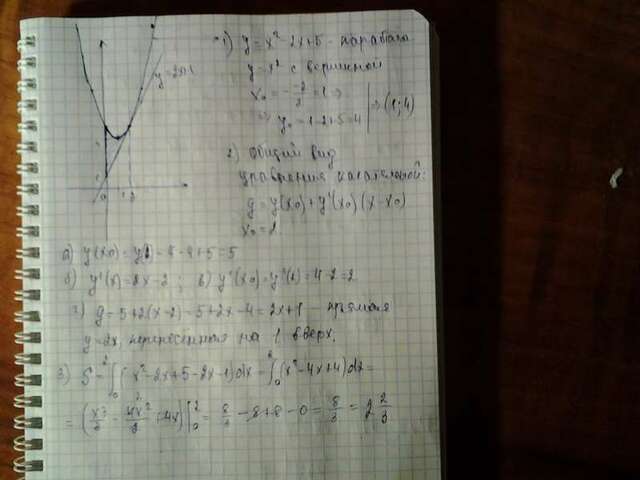 y=2x+1
1) y = x² - 2x+5 - парабола
y=x² с вершиной
x₀ = - -2/2 = 1 ⇒
⇒ y₀ = 1-2+5=4 ⇒ (1; 4)
2) Общий вид
уравнения касательной:
y = y(x₀) + y'(x₀)(x-x₀)
x₀=2
а) y(x₀) = y(2) = 4-4+5 = 5
б) y'(x) = 2x-2 ; в) y'(x₀) = y'(2) = 4-2=2
г) y = 5+2(x-2) = 5+2x-4 = 2x+1 - прямая
y=2x, перенесённая на 1 вверх.
3) S = ∫₀² (x²-2x+5-2x-1)dx = ∫₀² (x²-4x+4)dx =
= (x³/3 - 4x²/2 + 4x)|₀² = 8/3 - 8+8 - 0 = 8/3 = 2 2/3